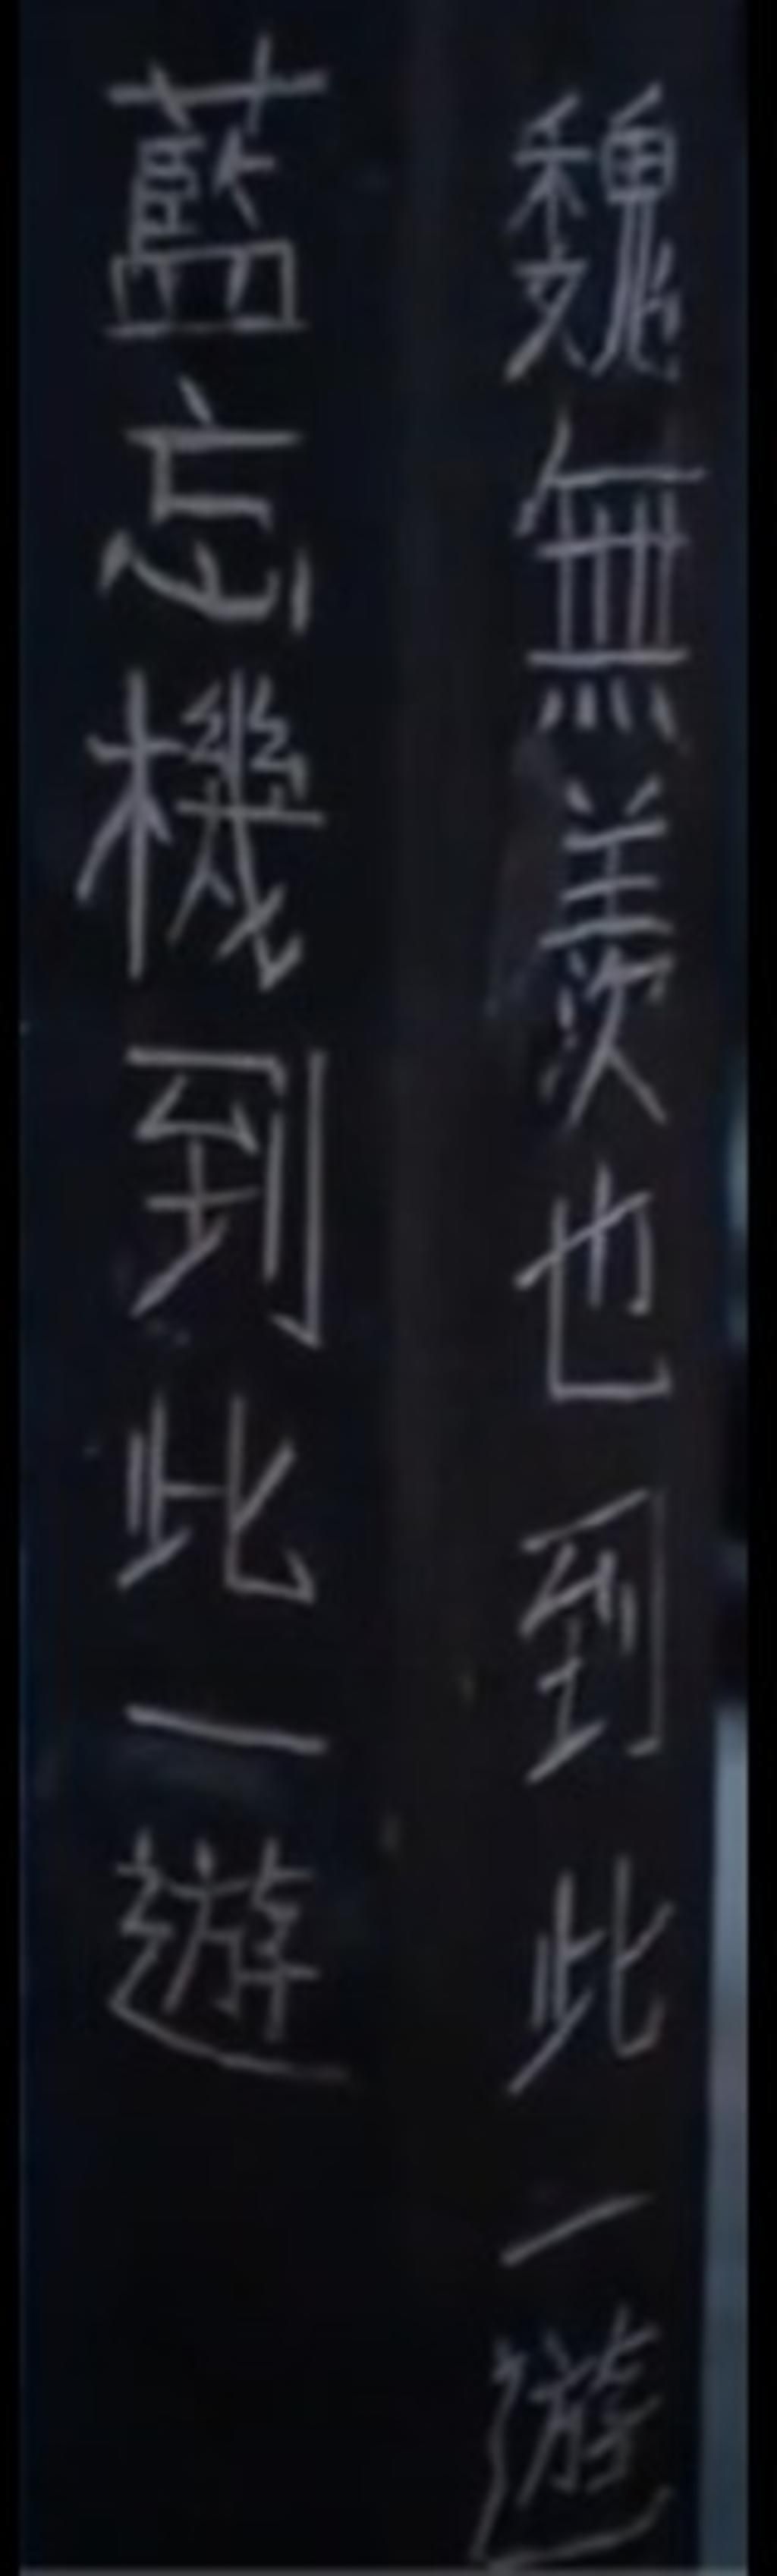 魏無羨也到此一遊
藍忘機到此一遊